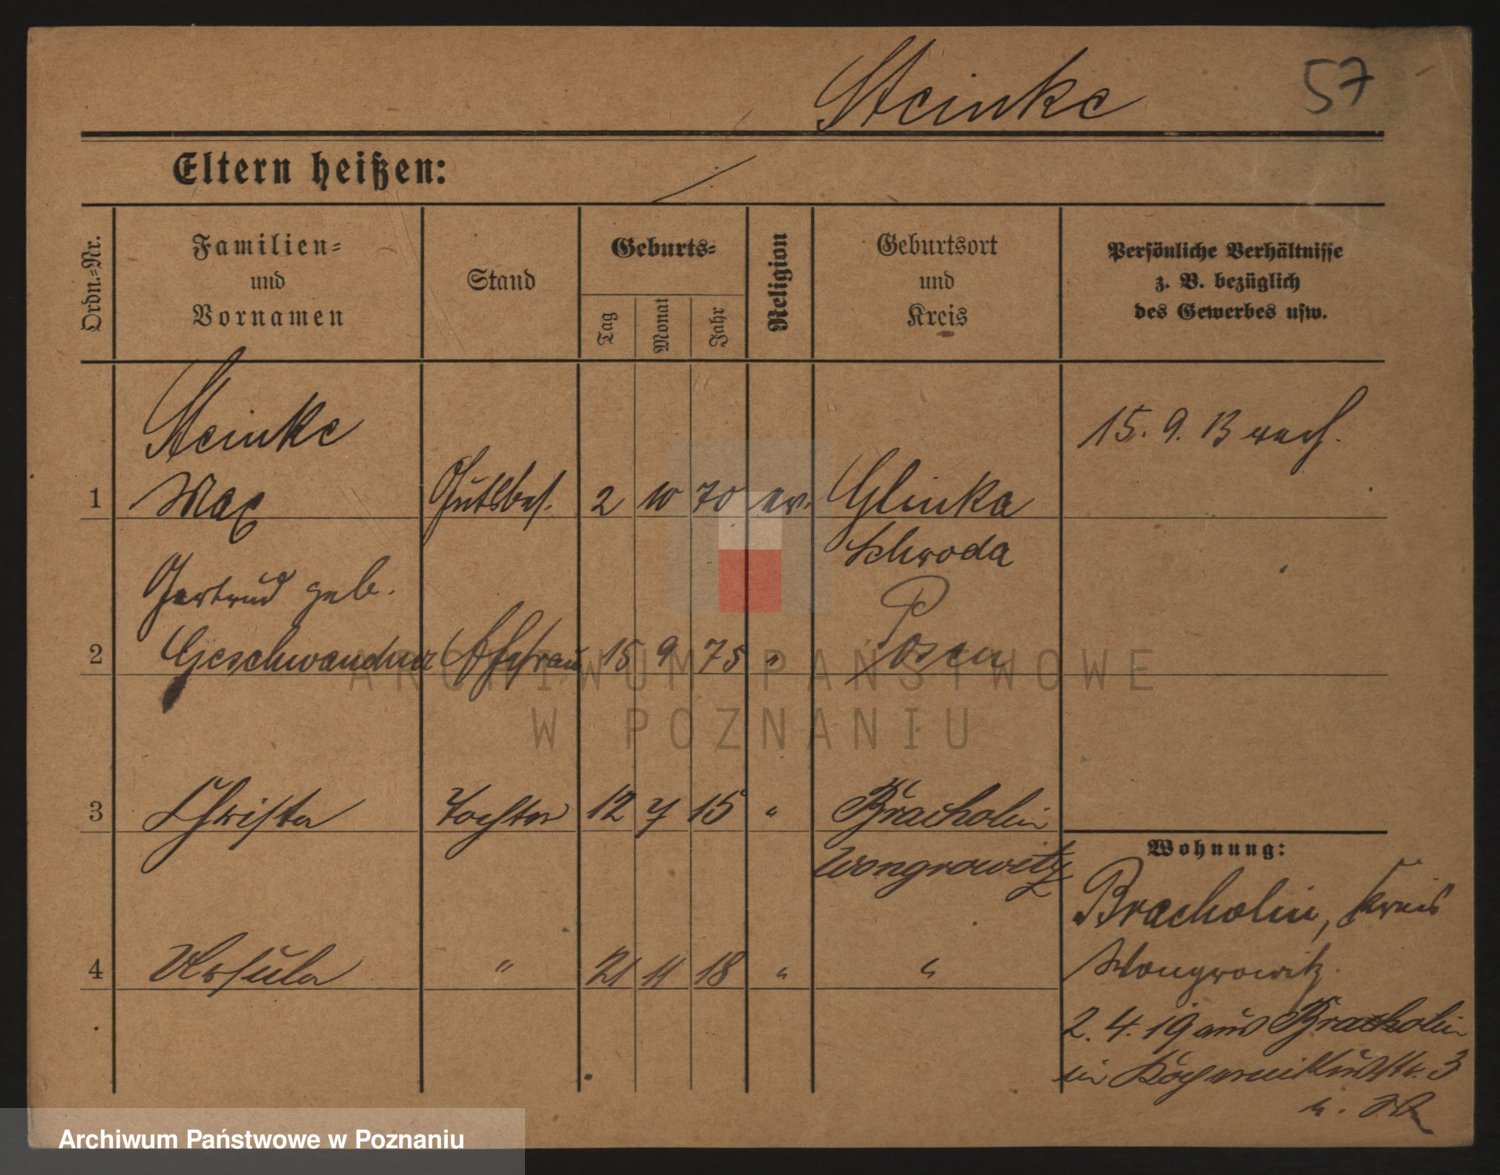 Steinke
57
Eltern heißen:
Ordn.-Nr.
Familien-
und
Vornamen
Stand
Geburts-
Tag
Monat
Jahr
Religion
Geburtsort
und
Kreis
Persönliche Verhältnisse
z. B. bezüglich
des Gewerbes usw.
Steinke
15. 9. 13
1 Max Gutsbes. 2 10 70 ev. Glinka
Schroda
Gertrud geb.
2 Geschwandner Ehefrau 15 9 75 " Posen
3 Christa Tochter 12 7 15 " Bracholin
Wongrowitz
4 Ursula " 21 11 18 " "
Wohnung:
Bracholin, Kreis
Wongrowitz.
2. 4. 19 aus Bracholin
in 3
ARCHIWUM PAŃSTWOWE
W POZNANIU
Archiwum Państwowe w Poznaniu